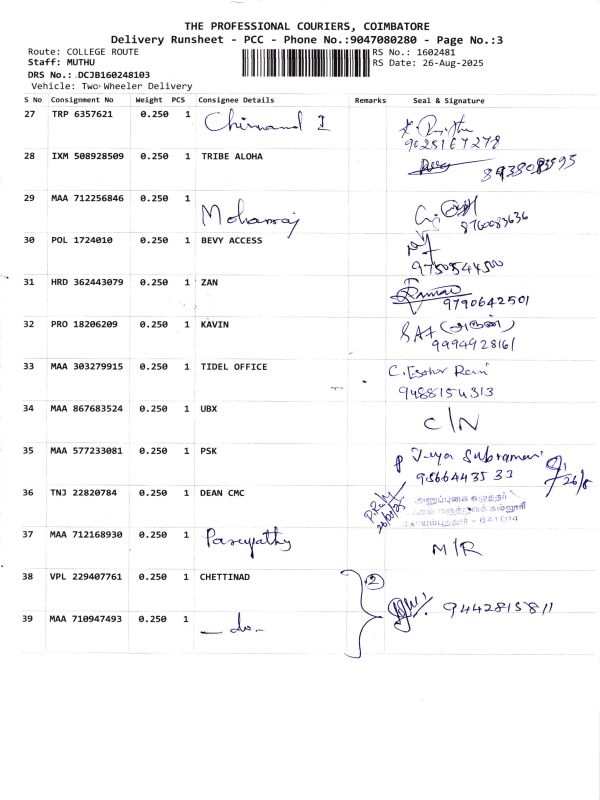 THE PROFESSIONAL COURIERS, COIMBATORE
Delivery Runsheet - PCC - Phone No.:9047080280 - Page No.:3
Route: COLLEGE ROUTE RS No.: 1602481
Staff: MUTHU RS Date: 26-Aug-2025
DRS No.: DCJB160248103
Vehicle: Two Wheeler Delivery
S No Consignment No Weight PCS Consignee Details Remarks Seal & Signature
27 TRP 6357621 0.250 1
28 IXM 508928509 0.250 1 TRIBE ALOHA 8938083595
29 MAA 712256846 0.250 1 Mohanraj 8760083636
30 POL 1724010 0.250 1 BEVY ACCESS 9750544500
31 HRD 362443079 0.250 1 ZAN 9790642501
32 PRO 18206209 0.250 1 KAVIN (அருண்)
9994928161
33 MAA 303279915 0.250 1 TIDEL OFFICE
9488154313
34 MAA 867683524 0.250 1 UBX C/N
35 MAA 577233081 0.250 1 PSK
9566443533 26/8
36 TNJ 22820784 0.250 1 DEAN CMC
கோயம்புத்தூர் - 641014
37 MAA 712168930 0.250 1 M/R
38 VPL 229407761 0.250 1 CHETTINAD 2
9442815811
39 MAA 710947493 0.250 1 - do -